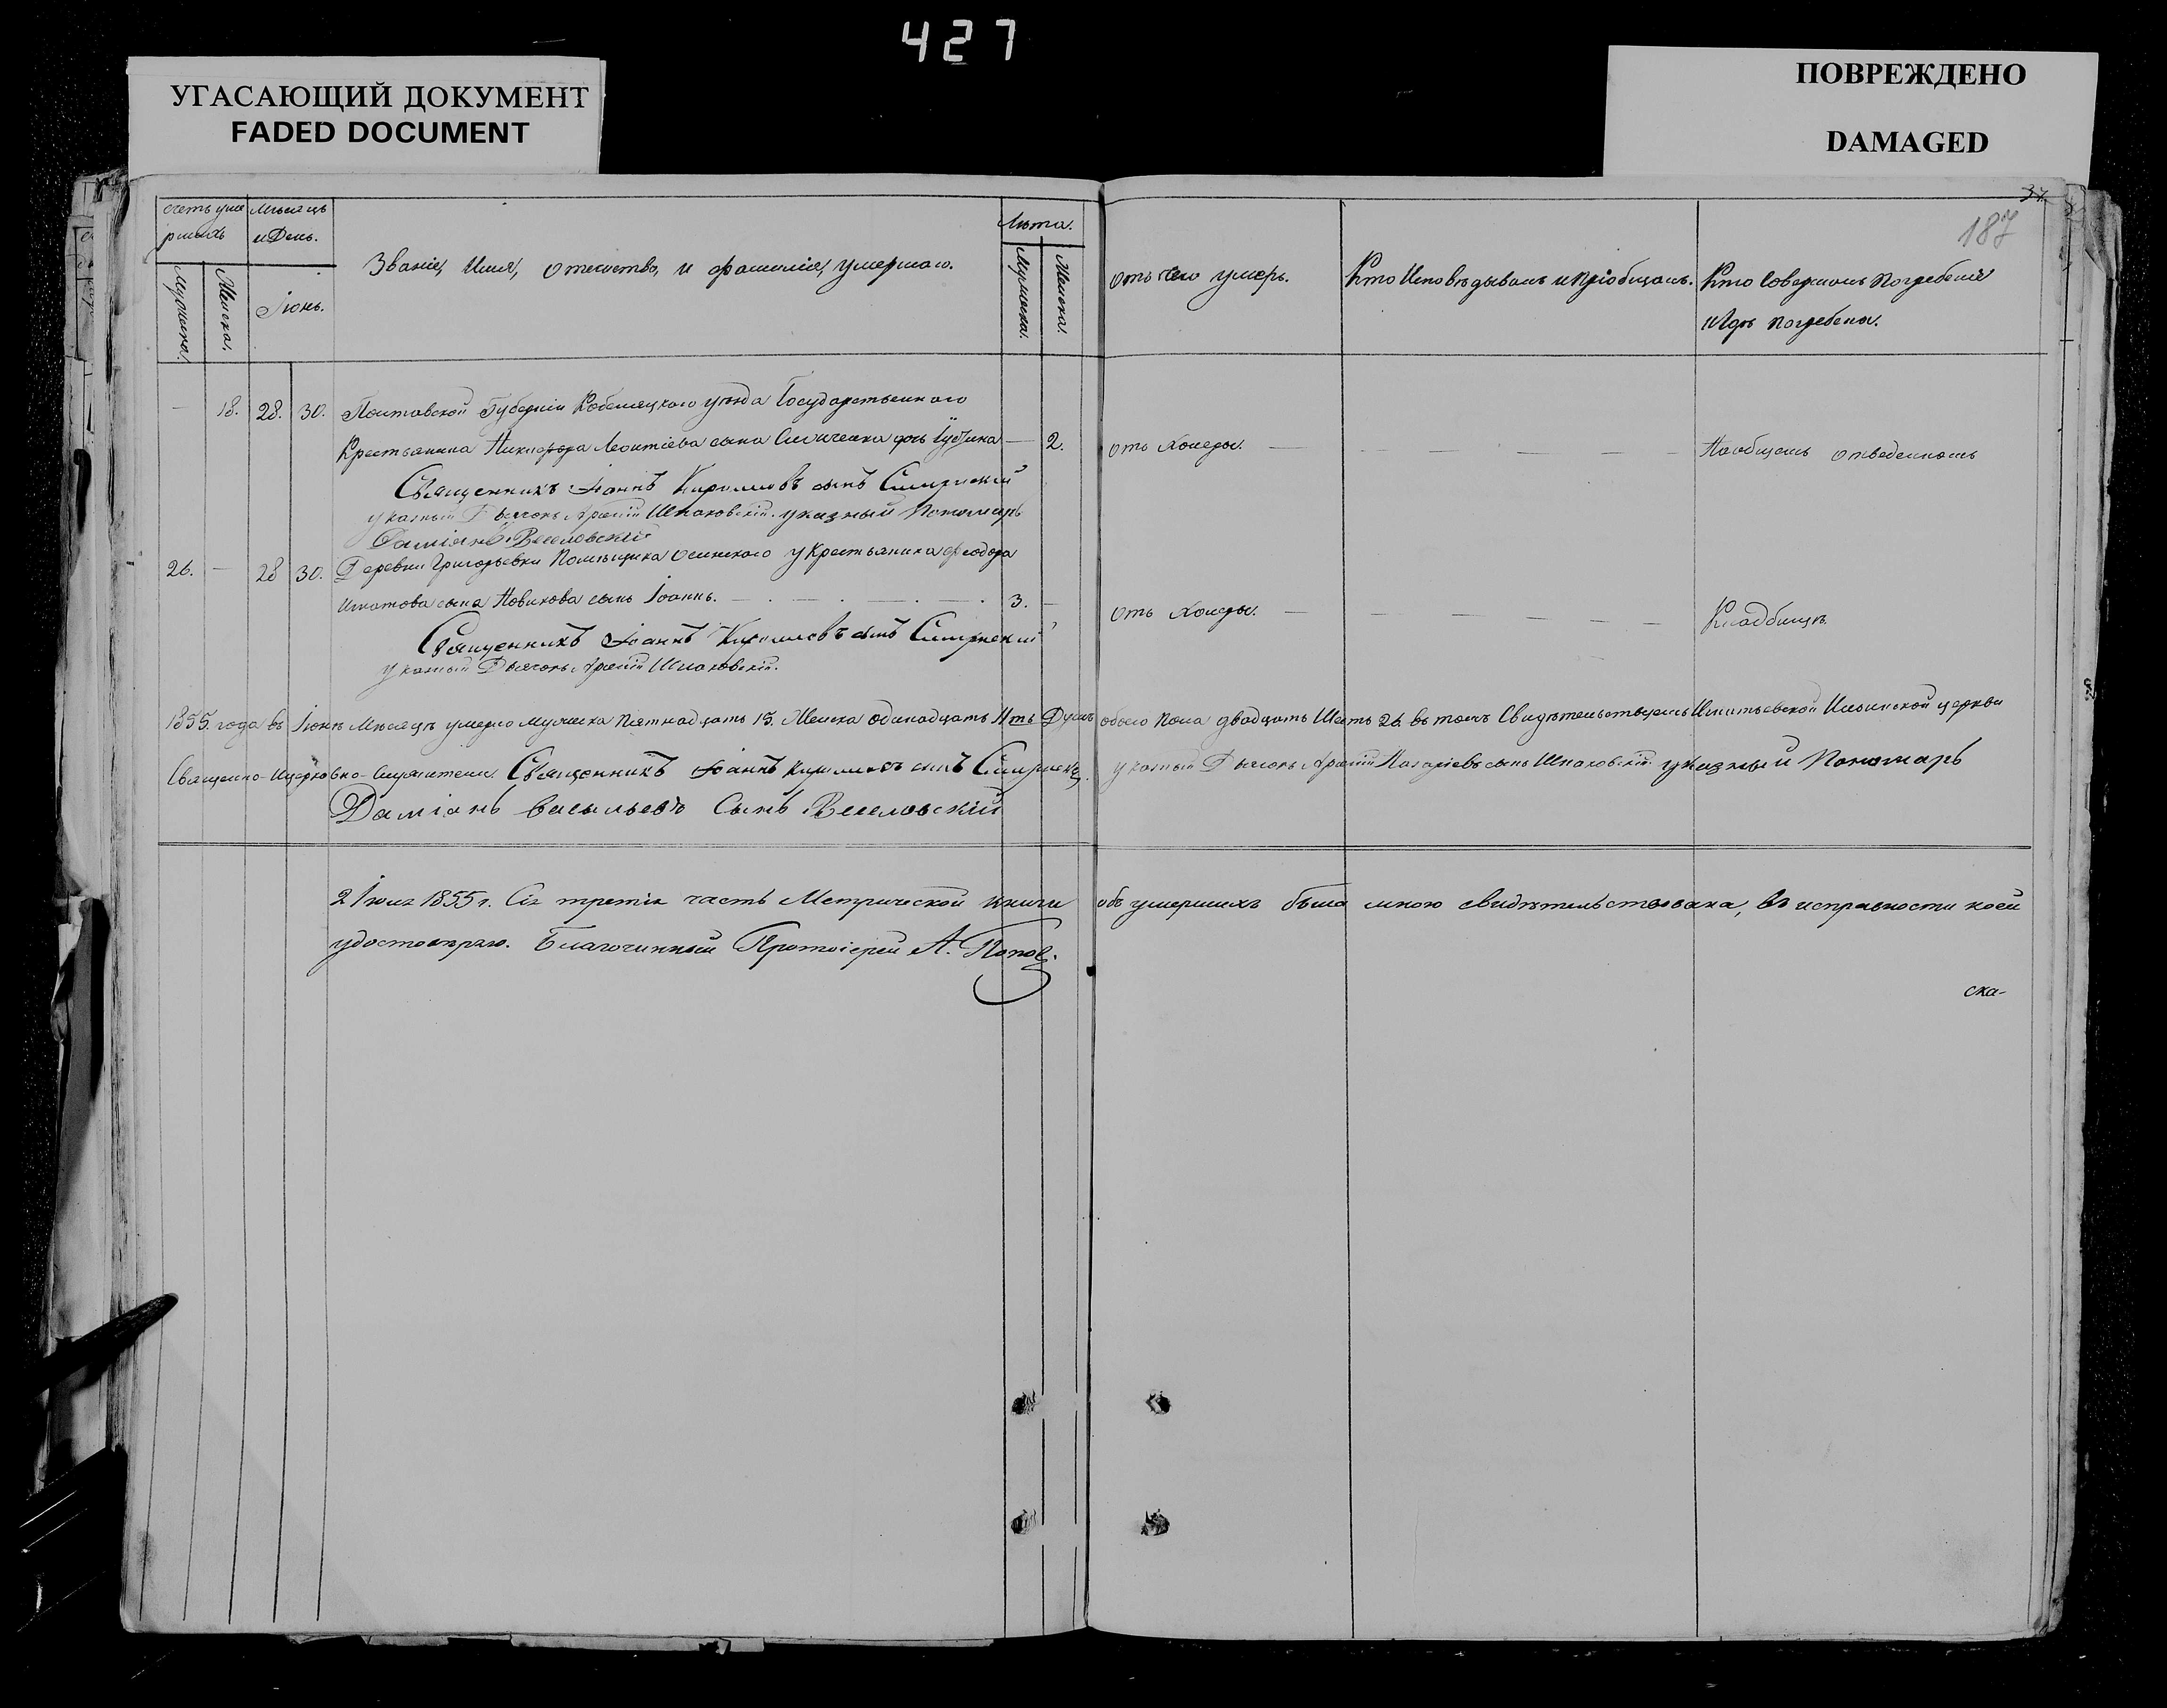 427
УГАСАЮЩИЙ ДОКУМЕНТ
FADED DOCUMENT
ПОВРЕЖДЕНО
DAMAGED
37
187
счетъ уме
ршихъ
Мужеска.
Женска.
Мѣсяцъ
и День.
Іюнь.
Званіе, Имя, отечество, и фамилія, умершаго.
Лѣта.
Мужеска.
Женска.
отъ чего умеръ.
Кто Исповѣдывалъ и пріобщалъ.
Кто Совершалъ Погребеніе
и Гдѣ погребены.
— 18. 28. 30. Полтавской Губерніи Кобеляцкаго уѣзда Государственнаго
Крестьянина Никифора Леонтіева сына дочь — 2. отъ Холеры. — На общемъ отведенномъ
Священникъ Іоаннъ Кирилловъ сынъ
указный Дьячокъ Шпаковскій. указный Пономарь
Даміанъ Веселовскій
26. — 28 30. Деревни Григорьевки Помѣщика Крестьянина Феодора
сына Новикова сынъ Іоаннъ. — 3. — отъ Холеры. — Кладбищѣ.
Священникъ Іоаннъ Кирилловъ сынъ
указный Дьячокъ Шпаковскій.
1855. года въ Іюнѣ Мѣсяцѣ умерло мужеска пятнадцать 15. Женска одинадцать 11ть Душъ обоего пола двадцать Шесть 26. въ томъ Свидѣтельствуемъ Игнатьевской Ильинской церкви
Священно-Ицерковно-Служители. Священникъ Іоаннъ Кирилловъ сынъ указный Дьячокъ сынъ Шпаковскій. указный Пономарь
Даміанъ Васильевъ Сынъ Веселовскій
2 Іюля 1855 г. Сія третія часть Метрической книги объ умершихъ была мною свидѣтельствована, въ исправности коей
удостовѣряю. Благочинный Протоіерей А. Поповъ.
ска-